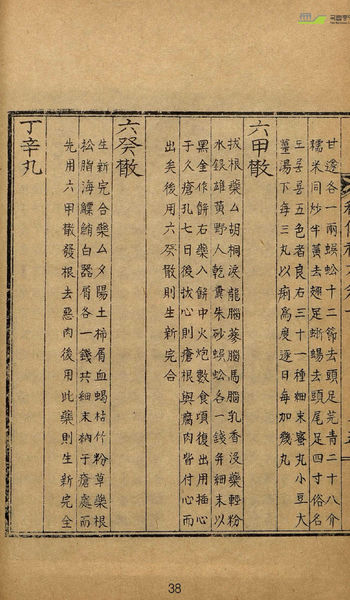 甘遂各一兩蜈蚣十二節去頭足芫青二十八介
糯米同炒牛黃去翅足蜥蝪去頭尾足四寸俗名
五色者良右三十一種細末蜜丸小豆大
薑湯下每三丸以痢爲度逐日每加幾丸
六甲散
拔根藥厶胡桐淚龍腦蔘腦馬腦乳香沒藥輕粉
水銀雄黃野人乾糞朱砂蜈蚣各一錢幷細末以
黑金作餠右藥入餠中火炮數食頃復出用揷心
于久瘡孔七日後拔心則瘡根與腐肉皆付心而
出矣後用六癸散則生新完合
六癸散
生新完合藥厶 陽土柿屑血蝎枯竹粉草藥根
松脂海鰾鮹白器屑各一錢共細末納于瘡處而
先用六甲散發根去惡肉後用此藥則生新完全
丁辛丸
38